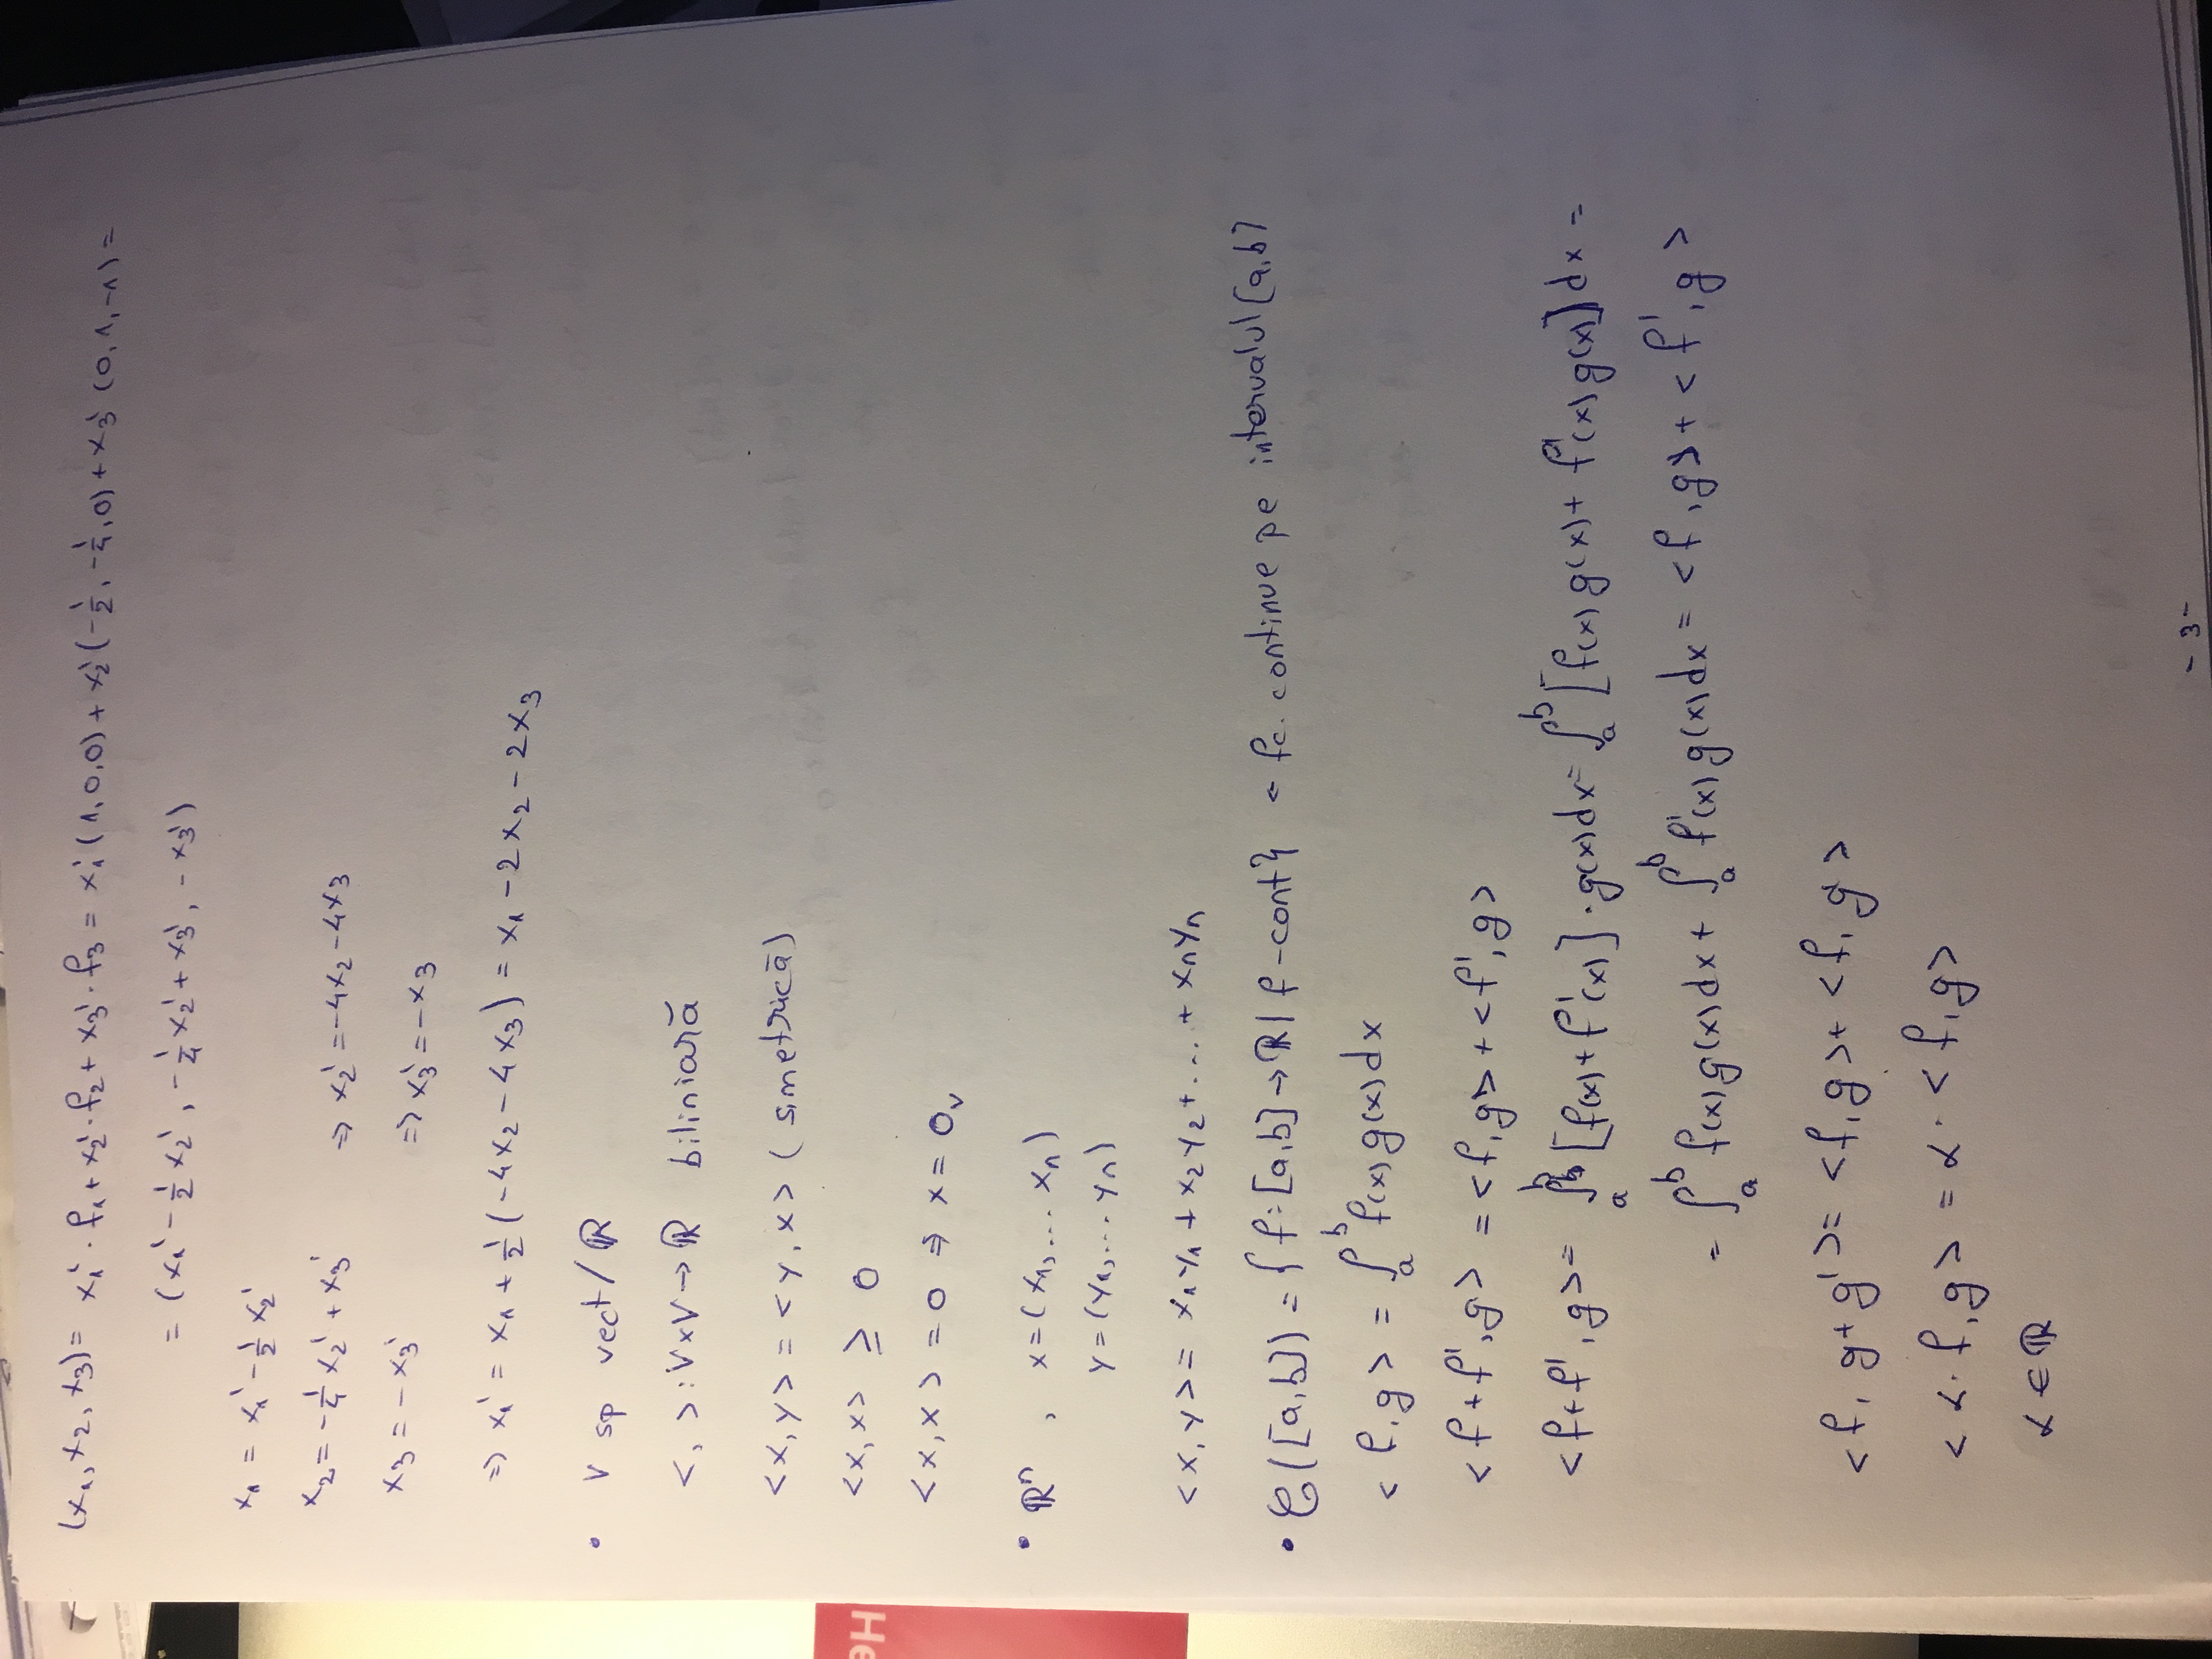 (x₁, x₂, x₃) = x₁' · f₁ + x₂' · f₂ + x₃' · f₃ = x₁' (1, 0, 0) + x₂' (-1/2, -1/4, 0) + x₃' (0, 1, -1) =
= (x₁' - 1/2 x₂', -1/4 x₂' + x₃', -x₃')
x₁ = x₁' - 1/2 x₂'
x₂ = -1/4 x₂' + x₃' ⇒ x₂' = -4x₂ - 4x₃
x₃ = -x₃' ⇒ x₃' = -x₃
⇒ x₁' = x₁ + 1/2 (-4x₂ - 4x₃) = x₁ - 2x₂ - 2x₃
• V sp vect/ℝ
<, > : V×V → ℝ biliniară
<x, y> = <y, x> (simetrică)
<x, x> ≥ 0
<x, x> = 0 ⇒ x = 0ᵥ
• ℝⁿ , x = (x₁, ... xₙ)
y = (y₁, ... yₙ)
<x, y> = x₁y₁ + x₂y₂ + ... + xₙyₙ
• C([a,b]) = {f : [a,b] → ℝ | f - cont} - fc. continue pe intervalul [a,b]
<f, g> = ∫ₐᵇ f(x) g(x) dx
<f + f', g> = <f, g> + <f', g>
<f + f', g> = ∫ₐᵇ [f(x) + f'(x)] · g(x) dx = ∫ₐᵇ [f(x) g(x) + f'(x) g(x)] dx =
= ∫ₐᵇ f(x) g(x) dx + ∫ₐᵇ f'(x) g(x) dx = <f, g> + <f', g>
<f, g + g'> = <f, g> + <f, g'>
<α · f, g> = α · <f, g>
α ∈ ℝ
- 3 -